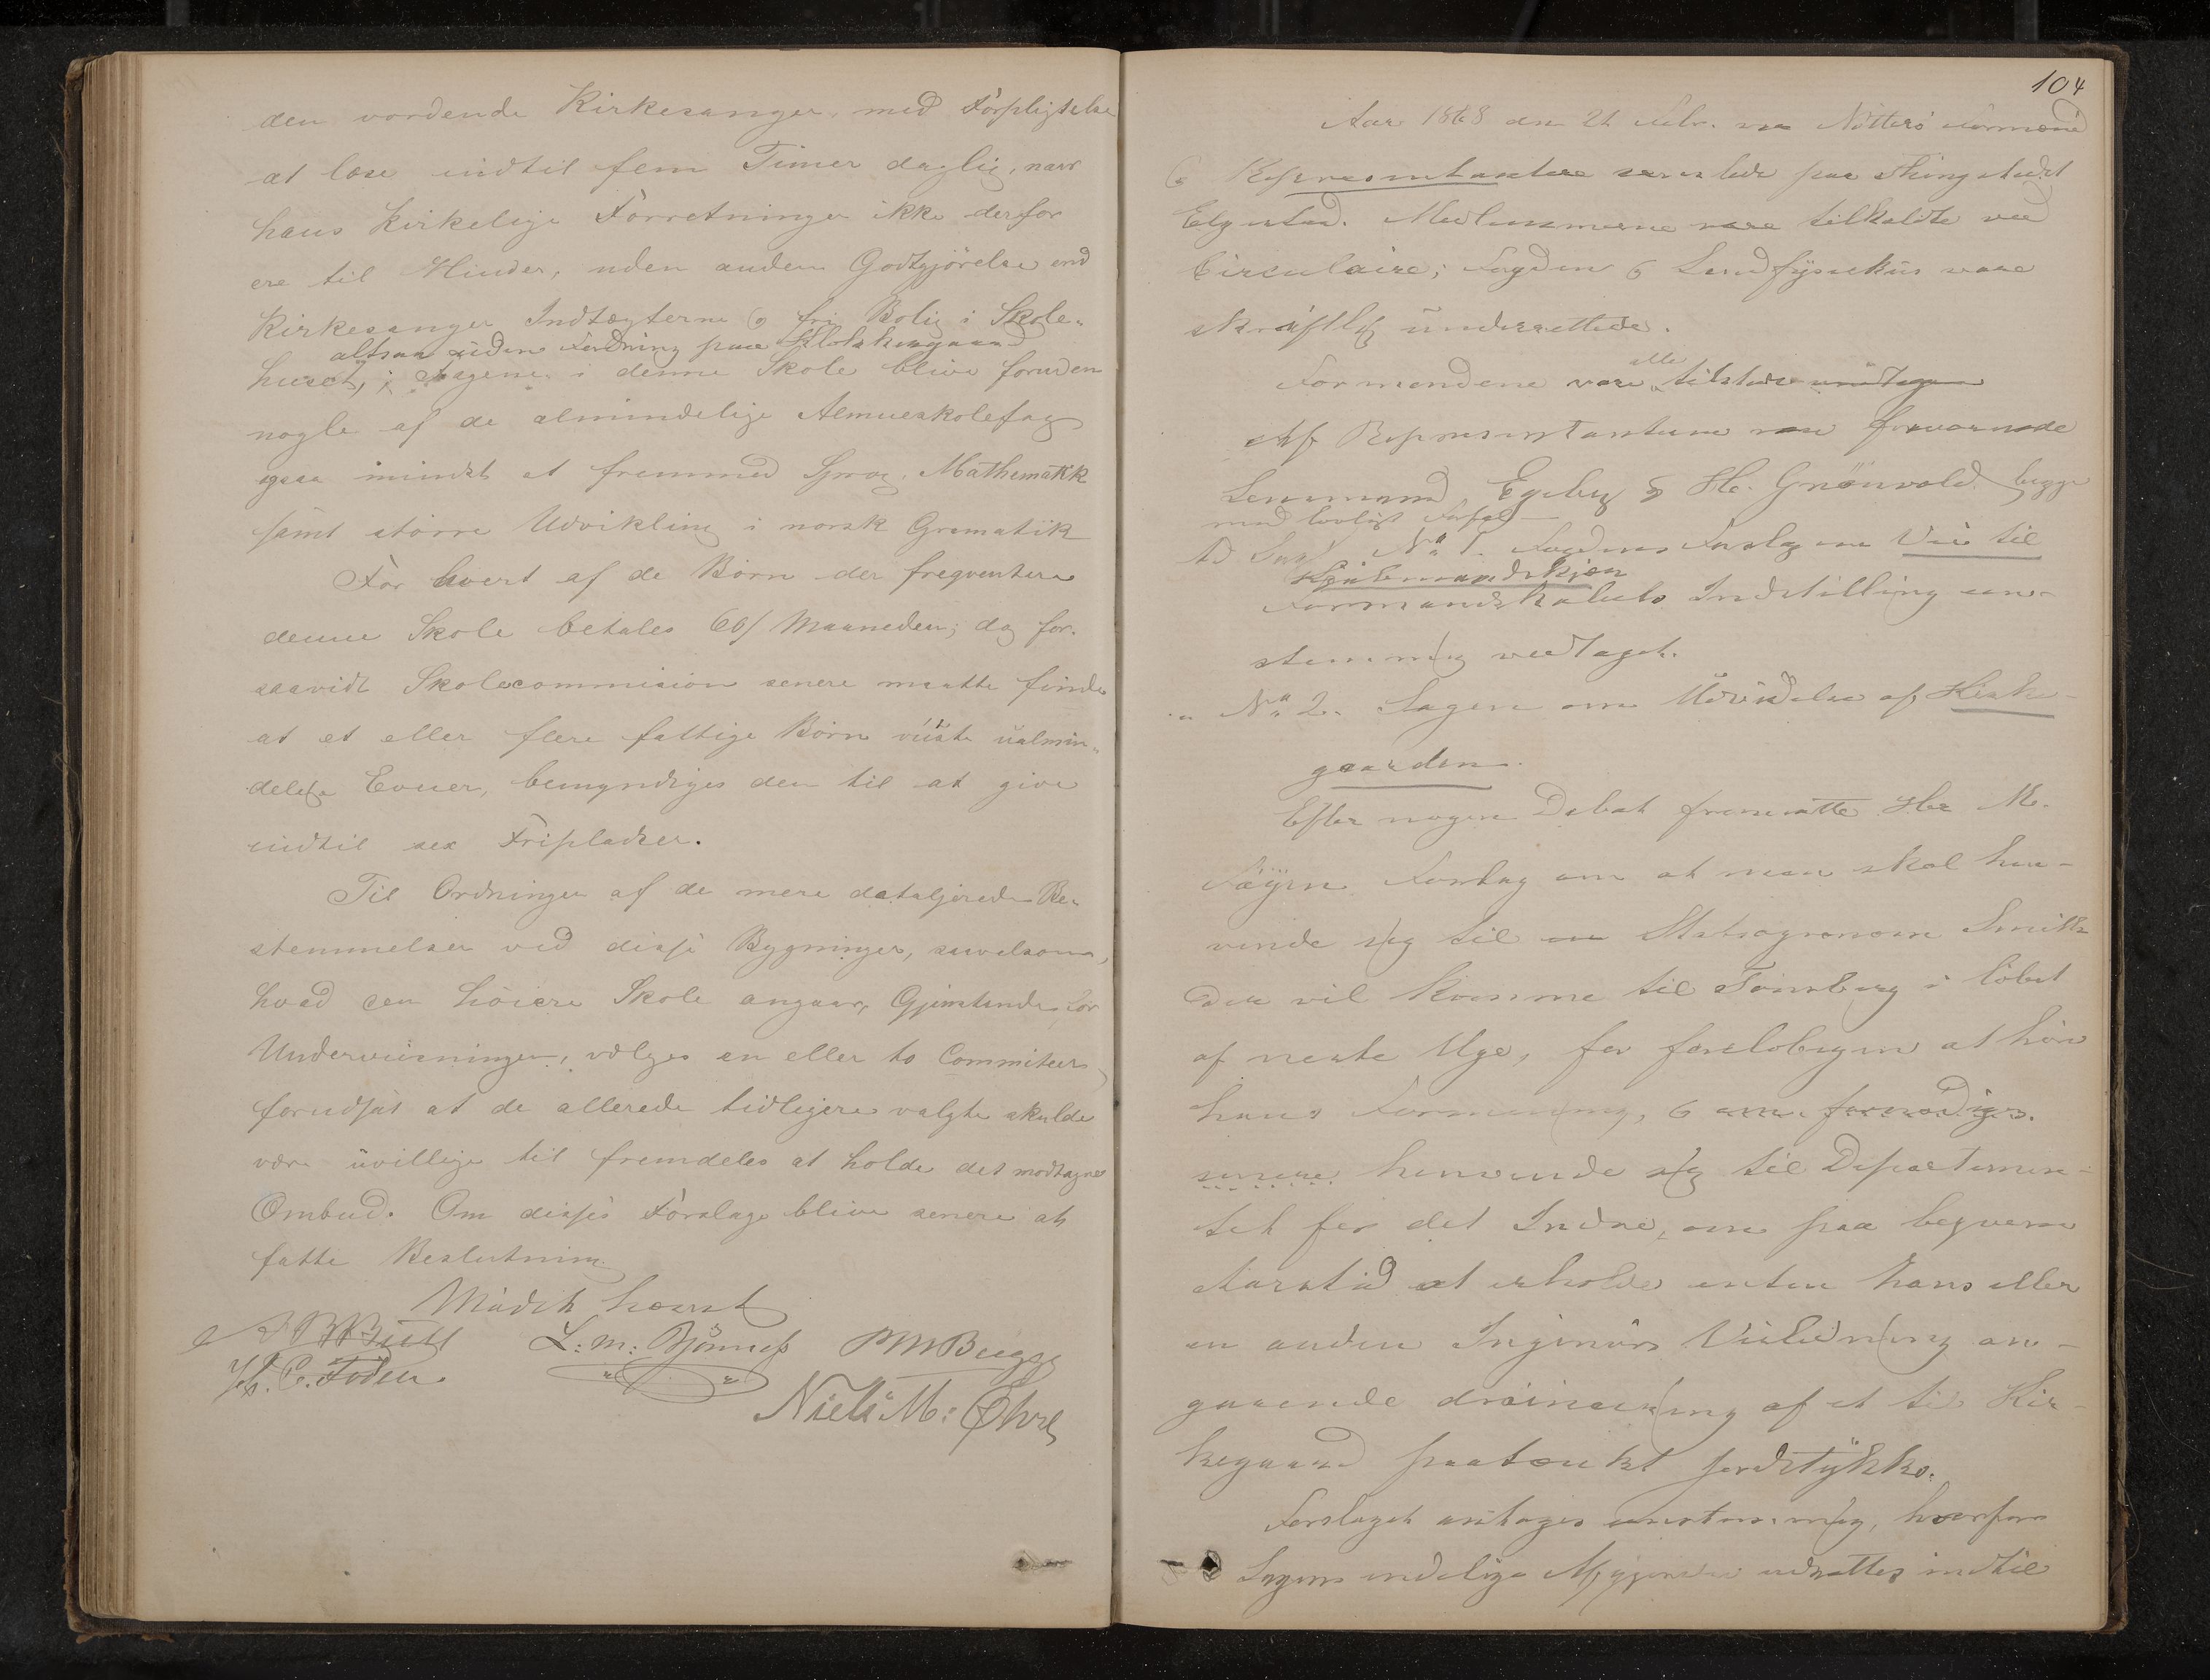 den vordende Kirkesanger, med Forpligtelse
at læse indtil fem Timer daglig, naar
hans kirkelige Forretninger ikke derfor
ere til Hinder, uden anden Godtgjörelse end
Kirkesanger Indtægterne og fri Bolig i Skole-
altsaa uden Fordring paa Klokkergaard
huset, Fagene i denne Skole blive foruden
nogle af de almindelige Almueskolefag
ogsaa mindst et fremmed Sprog, Mathematik
samt större Udvikling i norsk Gramatik
For hvert af de Börn der freqventere
denne Skole betales 60/ Maaneden; dog for-
saavidt Skolecommision senere maatte finde
at et eller flere fattige Börn viiste üalmin-
delige Evner, bemyndiges den til at give
indtil sex Fripladser.
Til Ordningen af de mere detaljerede Be-
stemmelser ved disse Bygninger, saavelsom,
hvad den höiere Skole angaar, Gjenstande for
Underviisningen, vælges en eller to Commiteer
forudsat at de allerede tidligere valgte skulde
være üvillige til fremdeles at holde det modtagne
Ombud. Om disse Forslag blive senere at
fatte Beslutning.
Mödet hævet
L: M: Bjönnes PMBugge
H. C. Foden
Niels M: Öhre
104
Aar 1868 den 21 Febr. var Nötterö Formænd
& Repræsentantere samlede paa Thingstedet
Elgestad. Medlemmerne vare tilkaldte ved
Circulaire; Fogden & Landfysikus vare
skriftlig underrettede.
alle
Formændene vare tilstede undtagen
Af Repræsentanterne var forværende
Lensmand Egeby & Hr. Grönvold begge
med lovligt Forfald
No 1. Fogdens Forslag om Vei til
Formandskabets Indstilling een-
stemmig vedtaget.
" No 2. Sagen om Udvidelse af Kirke-
gaarden.
Efter nogen Debat fremsatte Hr M.
Föyen Forslag om at man skal hen-
vende sig til Statsagronom Smith
Der vil komme til Tönsberg i löbet
af neste Uge, for foreløbigen at höre
hans Formening, & om fornödiges
senere henvende sig til Departemen-
tet for det Indre, om paa beqvem
Aarstid at erholde enten hans eller
en anden Ingeniörs Veiledning an-
gaaende drainering af et til Kir-
kegaard paatænkt Jordstykke.
Forslaget antoges eenstemmig, hvorfor
Sagens endelige Afgjørelse udsattes indtil